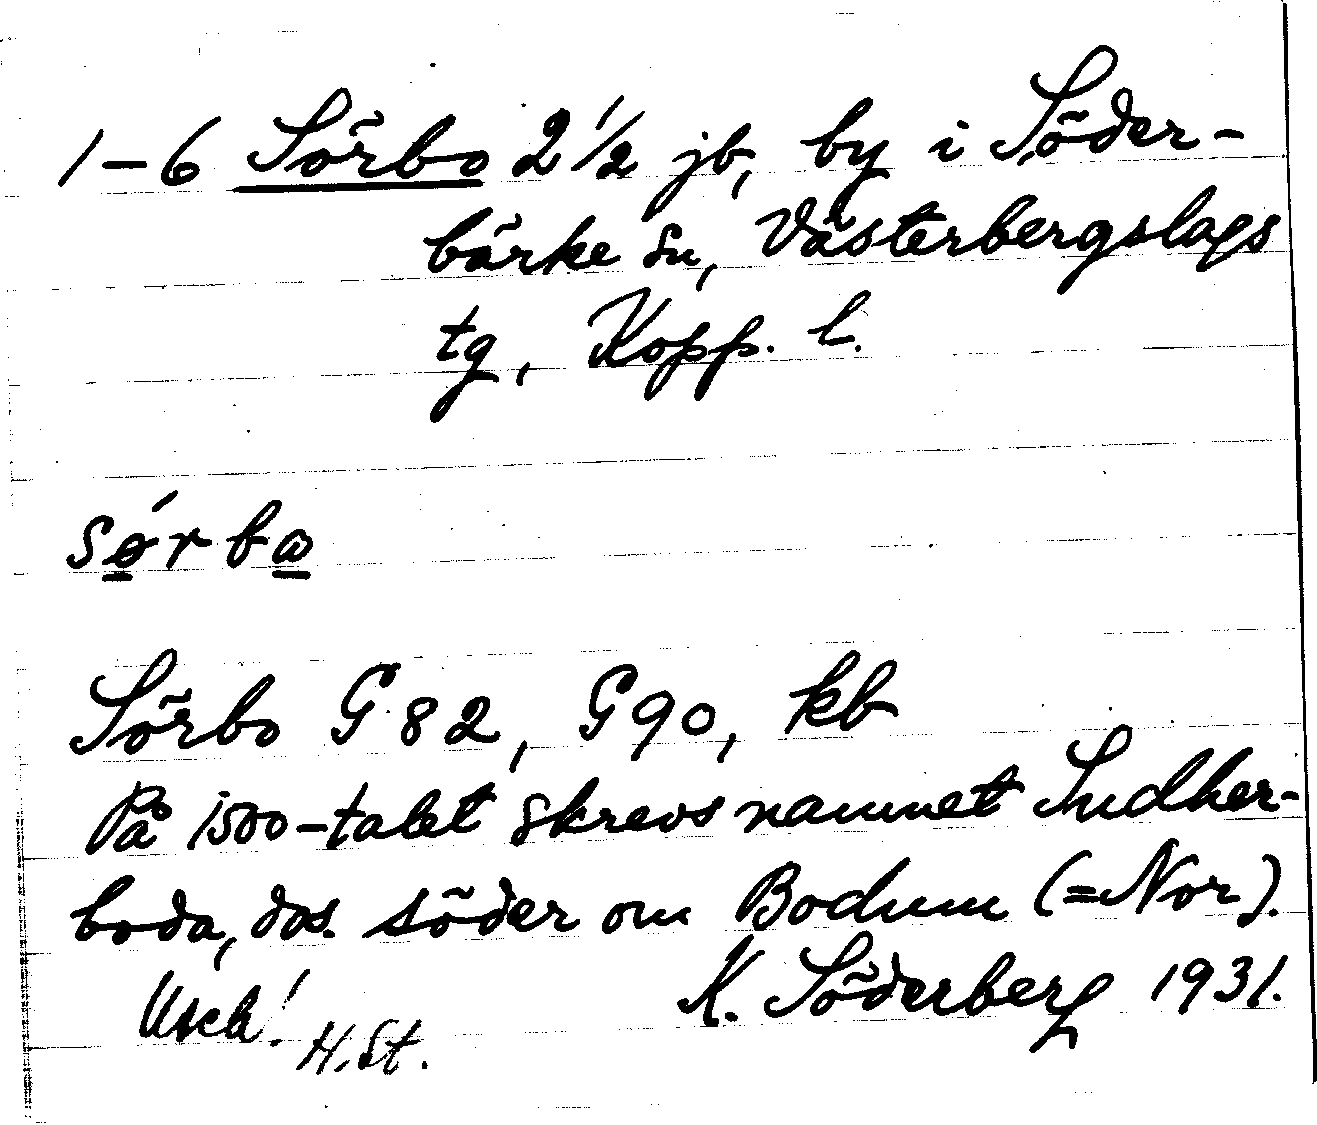 1–6 Sörbo 2 1/2 jb, by i Söder-
bärke sn, Västerbergslags
tg, Kopp. l.
sø´rbω
Sörbo G82, G90, kb
På 1500-talet skrevs namnet Sudher-
boda, dvs. söder om Bodum (=Nor).
K. Söderberg 1931.
Usch! H. St.